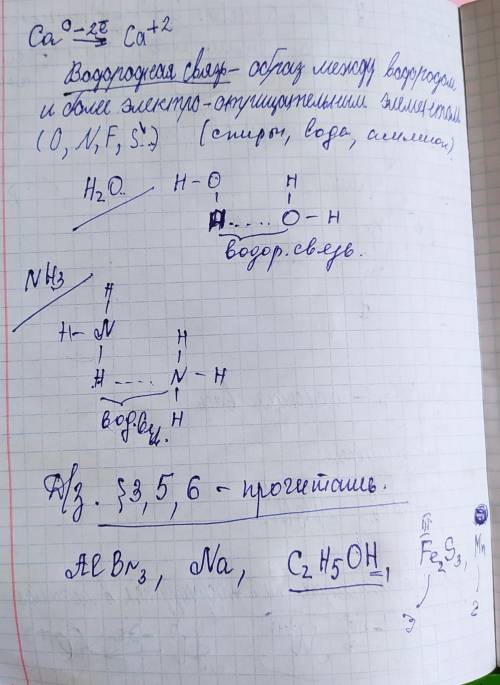 Ca⁰ -2ē → Ca⁺²
Водородная связь - образ между водородом
и более электро-отрицательным элементом
(O, N, F, S..) (спирты, вода, аммиак)
H₂O. H - O H
H ..... O - H
водор. связь.
NH₃
H
H - N H
H ..... N - H
вод. H
Д/з. §3, 5, 6 - прочитать.
III
AlBr₃, Na, C₂H₅OH, Fe₂S₃, Mn